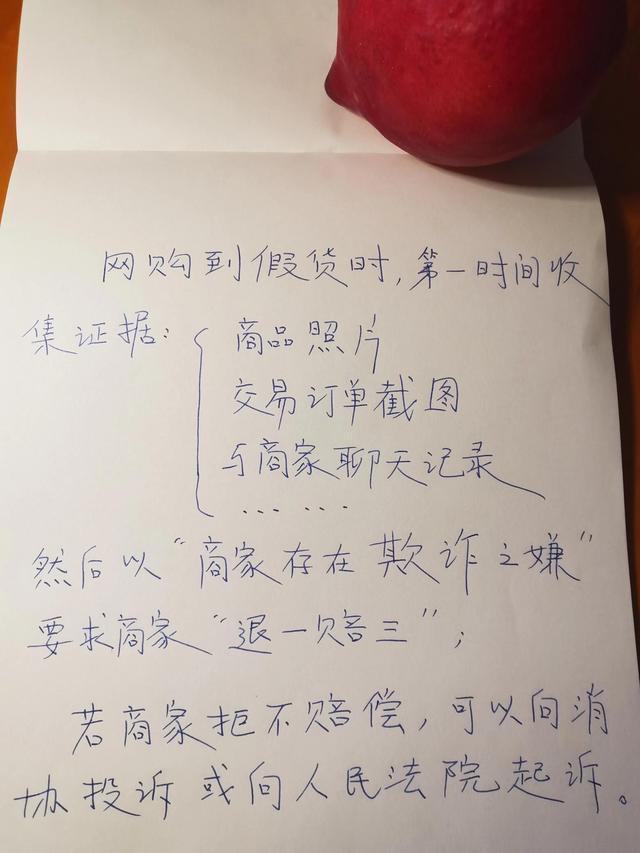 网购到假货时，第一时间收
集证据：
商品照片
交易订单截图
与商家聊天记录
……
然后以“商家存在欺诈之嫌”
要求商家“退一赔三”；
若商家拒不赔偿，可以向消
协投诉或向人民法院起诉。